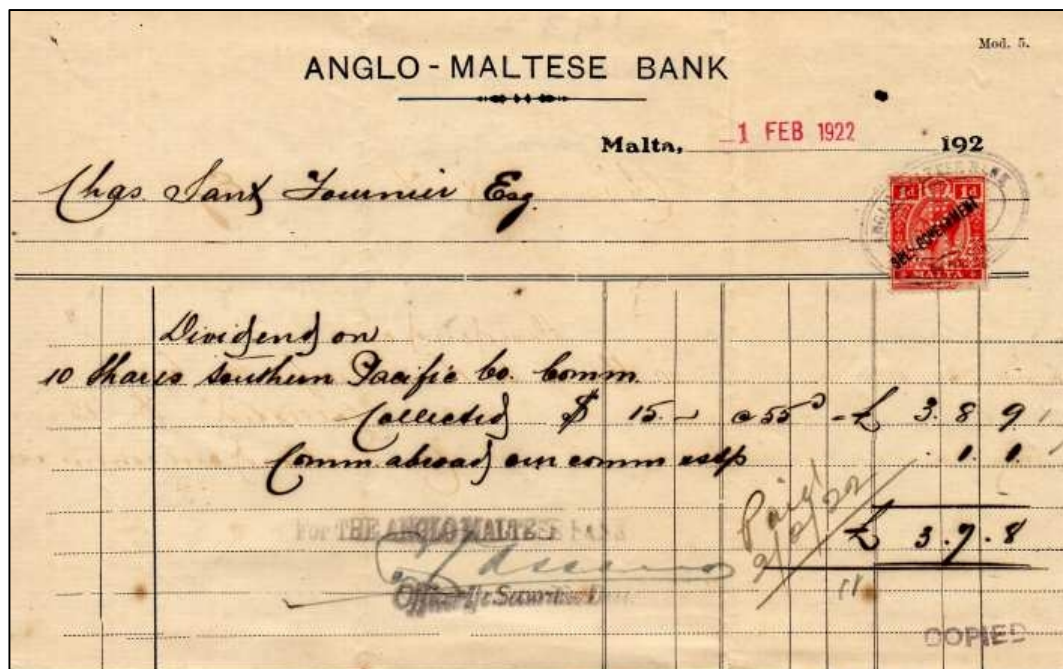 Mod. 5.
ANGLO - MALTESE BANK
Malta, 1 FEB 1922 192
Chas. Sant Fournier Esq.
1d 1d
SELF-GOVERNMENT
MALTA
Dividend on
10 Shares Southern Pacific Co. Comm.
Collected $ 15.- @ 55 = £ 3. 8 9
Comm abroad our comm 1. 1.
Paid
£ 3. 7. 8
For THE ANGLO MALTESE BANK
Officer i/c Securities Dept.
COPIED